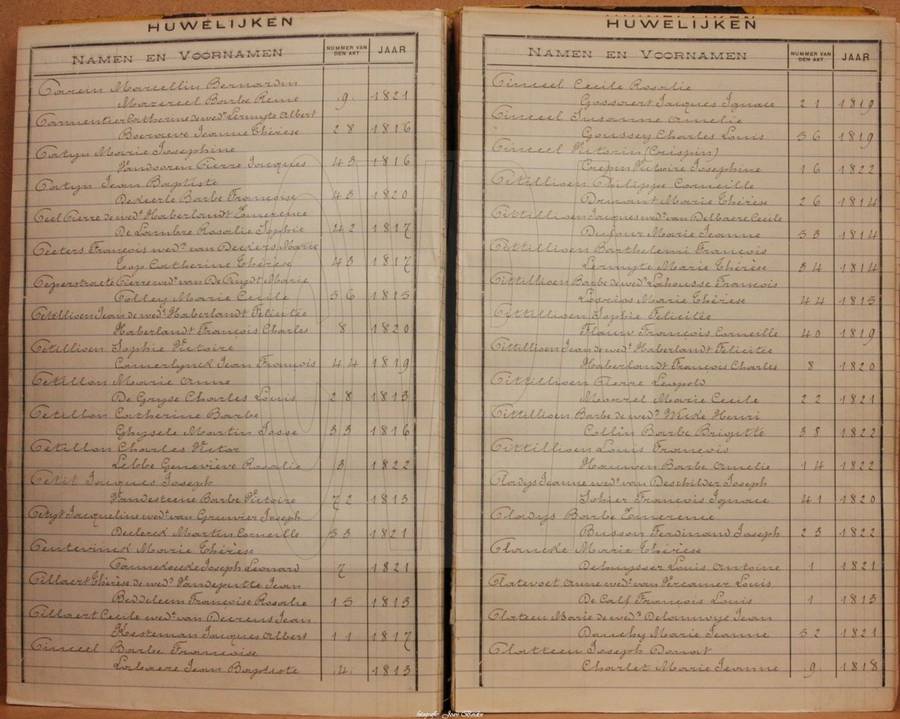 HUWELIJKEN
NAMEN EN VOORNAMEN NUMMER VAN DEN AKT JAAR
Marcellin Bernardin
Mazereel Barbe Reine 9 1821
Catherine de wed. Lermyte Albert
Jeanne Thérèse 28 1816
Marie Josephine
Vandooren Pierre Jacques 43 1816
Jean Baptiste
Barbe Françoise 43 1820
Pierre de wed. Haberlandt Emerence
De Lombre Rosalie Sophie 42 1817
Peeters François wed. van Deckers Marie
Catherine Thérèse 43 1817
Peperstraete Pierre wed. van De Puydt Marie
Colley Marie Cecile 56 1815
Petillioen Jean de wed. Haberlandt Felicitée
Haberlandt François Charles 8 1820
Petillioen Sophie Victoire
Camerlynck Jean François 44 1819
Petillon Marie Anne
De Gryse Charles Louis 28 1813
Petillon Catherine Barbe
Ghysele Martin Josse 33 1816
Petillon Charles Victor
Lebbe Geneviève Rosalie 3 1822
Petit Jacques Joseph
Vandesteene Barbe Victoire 72 1813
Petyt Jacqueline wed. van Grenvier Joseph
Declerck Martin Corneille 53 1821
Marie Thérèse
Joseph Leonard 7 1821
Pillaert Thérèse de wed. Vandeputte Jean
Beddeleem Françoise Rosalie 15 1813
Pillaert Cecile wed. van Jean
Kesteman Jacques Albert 11 1817
Pinceel Barbe Françoise
Jean Baptiste 4 1813
HUWELIJKEN
NAMEN EN VOORNAMEN NUMMER VAN DEN AKT JAAR
Pinceel Cecile Rosalie
Goossaert Jacques Ignace 21 1819
Pinceel Susanne Amelie
Goussey Charles Louis 56 1819
Pinceel Victorin (Crispin)
Crepin Victoire Josephine 16 1822
Petillioen Philippe Corneille
Marie Thérèse 26 1814
Pittillioen Jacques wed. van Delbaere Cecile
Dufour Marie Jeanne 53 1814
Pittillioen Barthelemi François
Lermyte Marie Thérèse 34 1814
Pittillioen Barbe de wed. Lahousse François
Marie Thérèse 44 1815
Pittillioen Sophie Felicitée
François Corneille 40 1819
Pittillioen Jean de wed. Haberlandt Felicitée
Haberlandt François Charles 8 1820
Pittillioen Pierre Leopold
Marie Cecile 22 1821
Pittillioen Barbe de wed. Henri
Collin Barbe Brigitte 38 1822
Pittillioen Louis François
Barbe Amelie 14 1822
Pladys Jeanne wed. van Deschilder Joseph
Sohier François Ignace 41 1820
Pladys Barbe Emerence
Busson Ferdinand Joseph 23 1822
Plancke Marie Thérèse
Louis Antoine 1 1821
Platevoet Anne wed. van Louis
De Calf François Louis 1 1813
Marie de wed. Delannoye Jean
Dauchy Marie Jeanne 52 1821
Joseph Donat
Charlet Marie Jeanne 9 1818